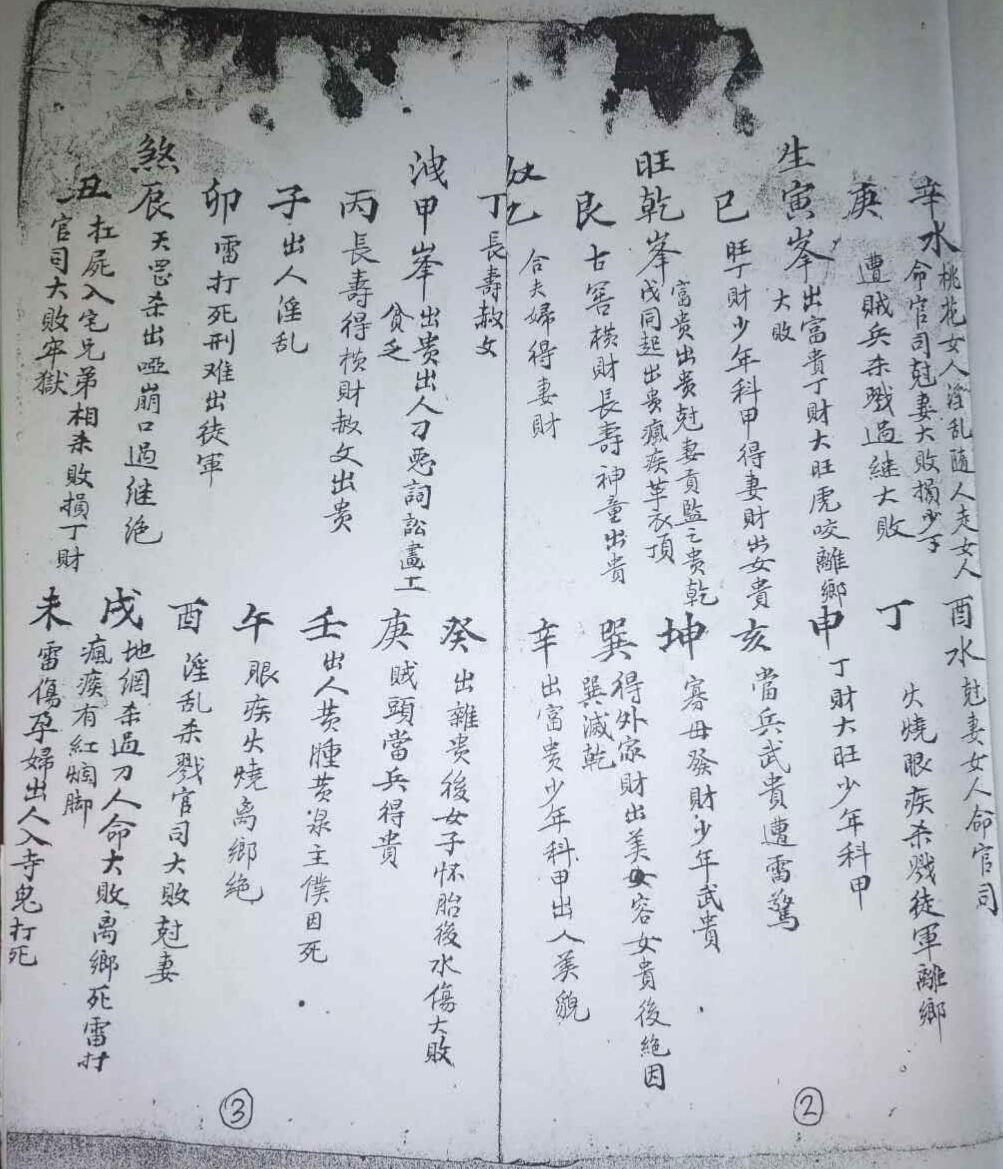 辛水 桃花女人淫乱隨人走女人
命官司尅妻大敗損少丁
庚 遭賊兵杀戮過継大敗
生寅峯 出富貴丁財大旺虎咬離鄉
大敗
巳 旺丁財少年科甲得妻財出女貴
旺乾峯 富貴出贵尅妻貢監之贵乾
戊同起出贵瘋疾革衣頂
艮 古窖横財長壽神童出貴
酉水 尅妻女人命官司
丁 火燒眼疾杀戮徒軍離鄉
申 丁財大旺少年科甲
亥 當兵武貴遭雷驚
坤 寡母發財少年武貴
巽 得外家財出美女容女貴後絕因
巽減乾
辛 出富贵少年科甲出人美貌
乙 合夫婦得妻財
丁 長壽赦文
洩甲峯 出贵出人刀恶詞訟畫工
貧乏
丙 長壽得横財赦文出贵
子 出人淫乱
卯 雷打死刑难出徒軍
煞辰 天罡杀出啞崩口過继绝
丑 扛屍入宅兄弟相杀敗損丁財
官司大敗牢獄
癸 出雜贵後女子怀胎後水傷大敗
庚 賊頭當兵得貴
壬 出人黄腫黄泉主僕因死
午 眼疾火燒离鄉绝
酉 淫乱杀戮官司大敗尅妻
戌 地網杀過刀人命大敗离鄉死雷打
瘋痰有紅焗脚
未 雷傷孕婦出人入寺鬼打死
③
②